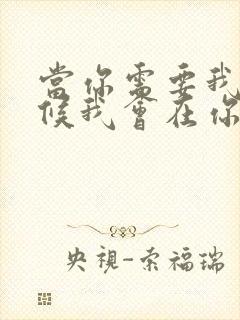 當你需要我
候我會在你
央視-索福瑞